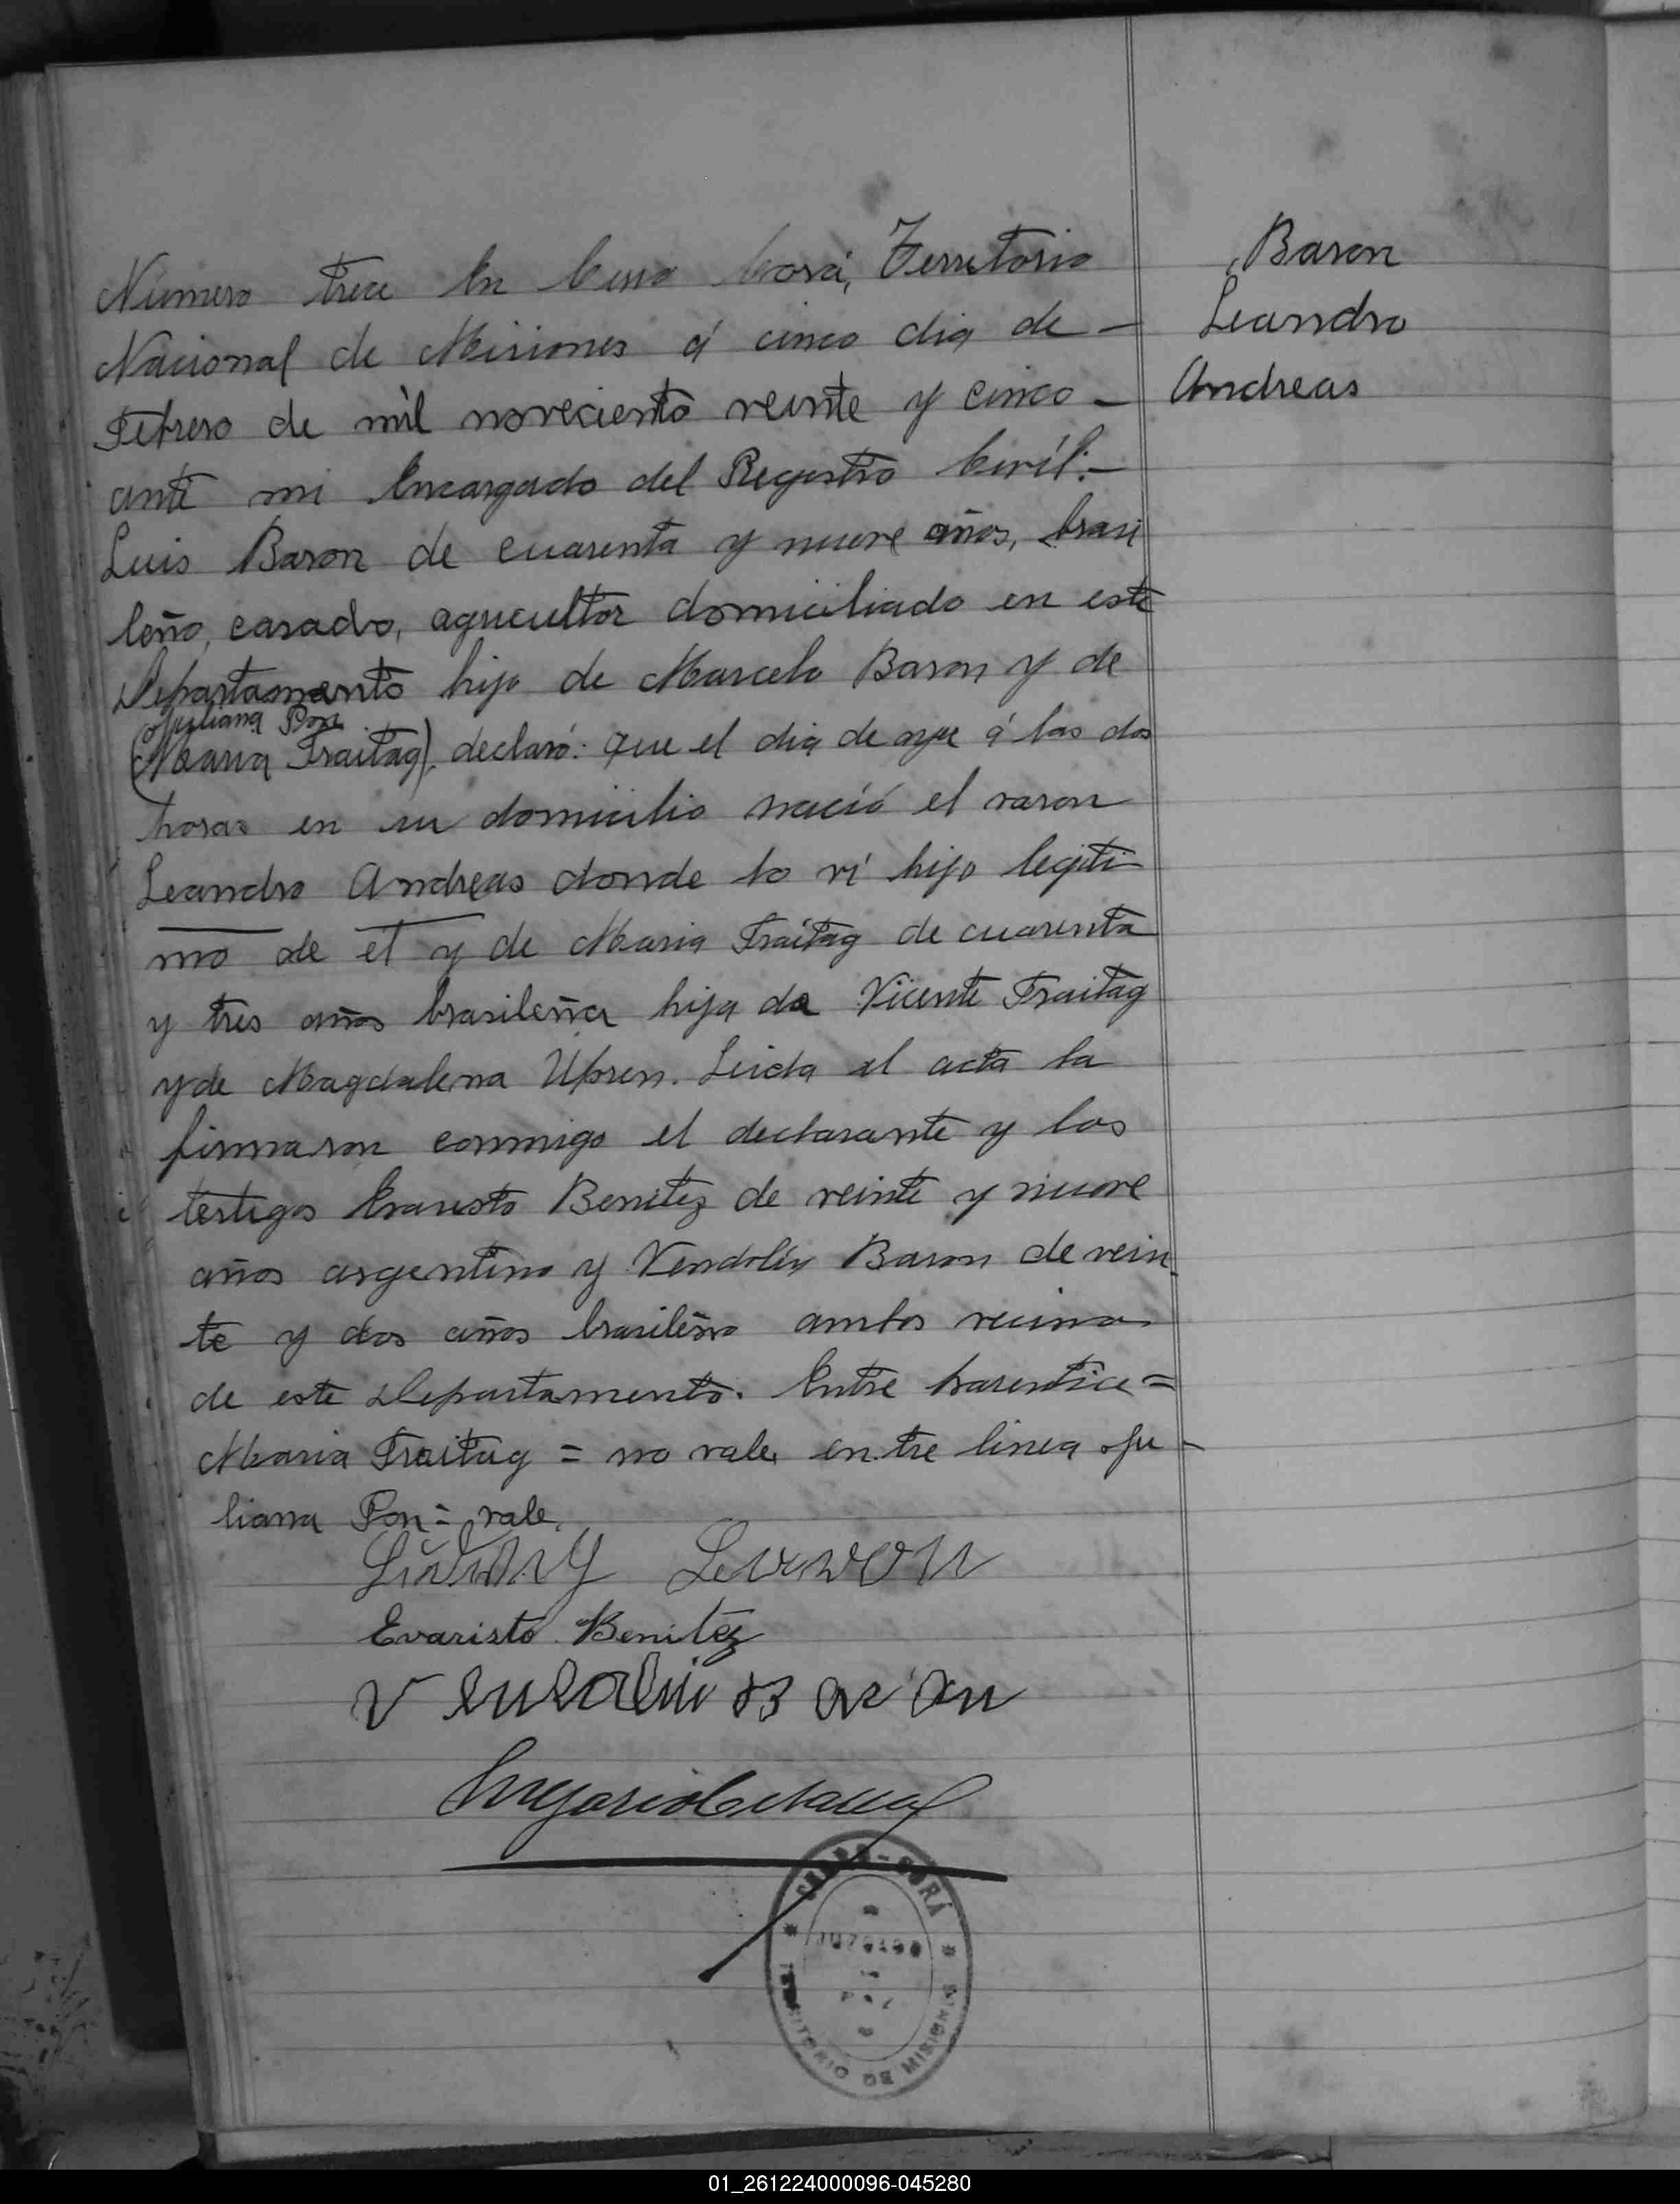 Número trece En Cerro Corá, Territorio
Nacional de Misiones á cinco dia de —
Febrero de mil noveciento veinte y cinco —
ante mi Encargado del Registro Civíl:—
Luis Baron de cuarenta y nueve años, brasi
leño, casado, agricultor domiciliado en este
Departamento hijo de Marcelo Baron y de
Juliana Pon
(Maria Fraitag), declaró: que el dia de ayer á las dos
horas en su domicilio nació el varon
Leandro Andreas donde lo ví hijo legiti-
mo de él y de Maria Fraitag de cuarenta
y tres años brasileña hija de Vicente Fraitag
y de Magdalena Leida el acta la
firmaron conmigo el declarante y los
testigos Evaristo Benitez de veinte y nueve
años argentino y Vendolín Baron de vein
te y dos años brasileño ambos vecinos
de este Departamento. Entre parentice=
Maria Fraitag = no vale, entre linea Ju-
liana Pon = vale.
Evaristo Benitez
Vendolin Baron
Baron
Leandro
Andreas
CERRO-CORÁ
JUZGADO
TERRITORIO DE MISIONES
01_261224000096-045280